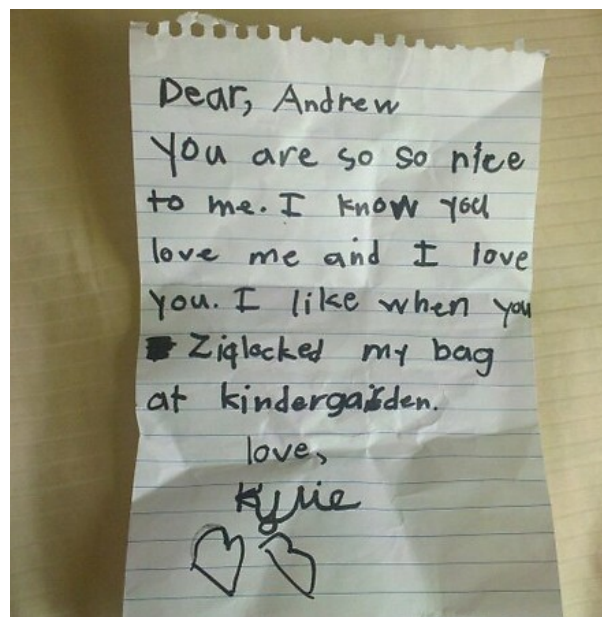 Dear, Andrew
You are so so nice
to me. I know you
love me and I love
you. I like when you
Ziqlocked my bag
at kindergairden.
love,
Kylie